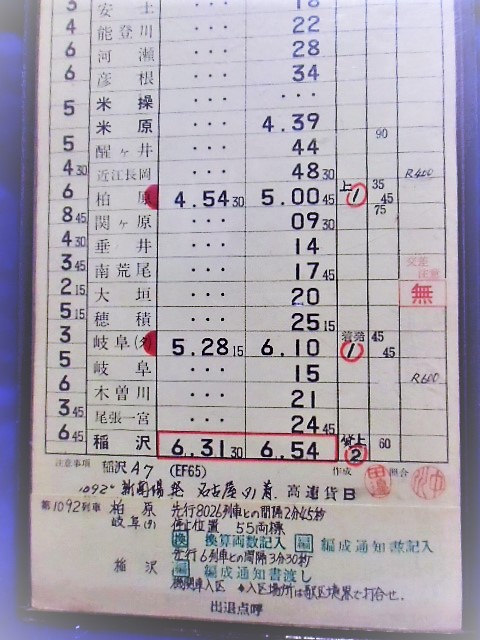 3 安土 ・・・ 18
4 能登川 ・・・ 22
6 河瀬 ・・・ 28
6 彦根 ・・・ 34
米操 ・・・ ・・・
5 米原 4.39 90
5 醒ヶ井 ・・・ 44
4 30 近江長岡 ・・・ 48 30 R400
6 柏原 4.54 30 5.00 45 上1 35 45 75
8 45 関ヶ原 ・・・ 09 30
4 30 垂井 ・・・ 14
3 45 南荒尾 ・・・ 17 45 交差注意
2 15 大垣 ・・・ 20 無
5 15 穂積 ・・・ 25 15
3 岐阜(タ) 5.28 15 6.10 着発1 45 45
5 岐阜 ・・・ 15 R600
6 木曽川 ・・・ 21
3 45 尾張一宮 ・・・ 24 45
6 45 稲沢 6.31 30 6.54 上2 60
注意事項 稲沢A7 (EF65) 作成 照合
1092ᴰ 発 名古屋タ着 高速貨B
第1092列車 柏原 先行8026列車との間隔2分45秒
岐阜(タ) 停止位置 55両標
換 換算両数記入 編 編成通知書記入
先行6列車との間隔3分30秒
稲沢 編 編成通知書渡し
機関車入区 入区場所は駅区境界で打合せ.
出退点呼